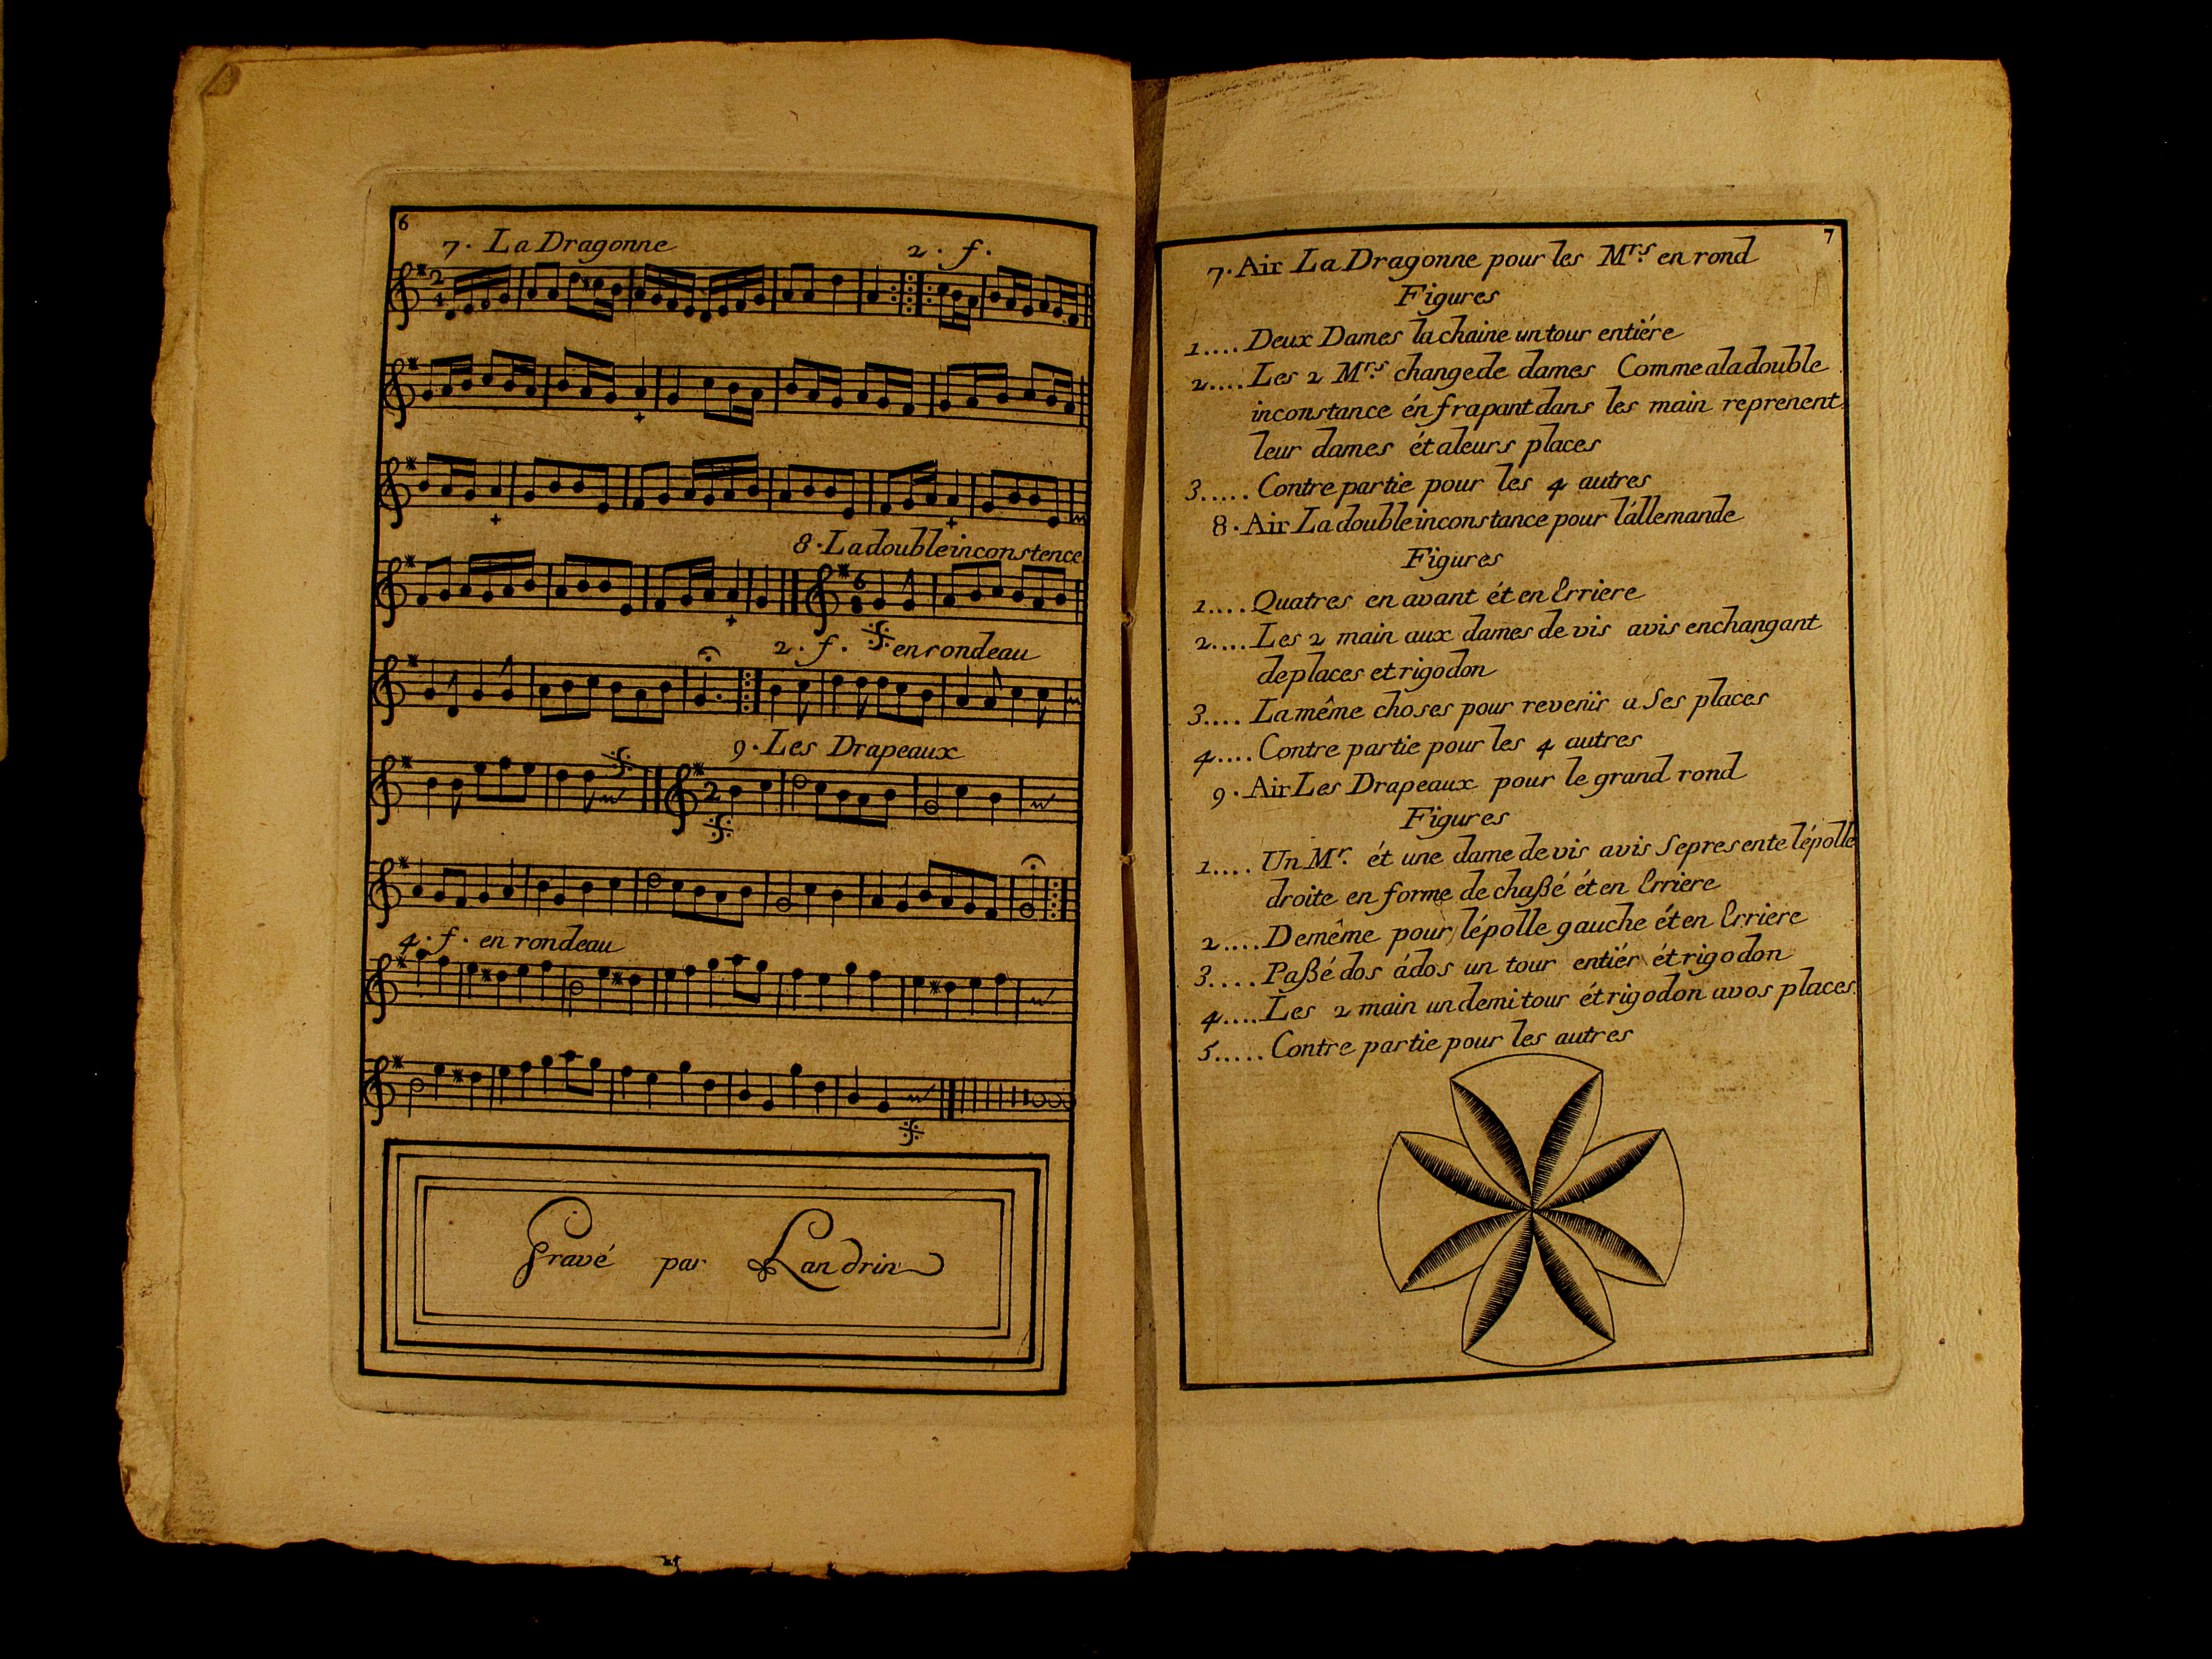 6
7. La Dragonne 2. f.
8. La double inconstence
2. f. en rondeau
9. Les Drapeaux
4. f. en rondeau
Gravé par Landrin
7
7. Air La Dragonne pour les Mrs. en rond
Figures
1.... Deux Dames la chaine un tour entiére
2.... Les 2 Mrs. change de dames Comme a la double
inconstance én frapant dans les main reprenent
leur dames ét a leurs places
3..... Contre partie pour les 4 autres
8. Air La double inconstance pour l'állemande
Figures
1.... Quatres en avant ét en Erriere
2.... Les 2 main aux dames de vis avis en changant
de places et rigodon
3.... La même choses pour revenir a Ses places
4.... Contre partie pour les 4 autres
9. Air Les Drapeaux pour le grand rond
Figures
1.... Un Mr. ét une dame de vis avis Se presente lépolle
droite en forme de chaßé ét en Erriere
2.... De même pour lépolle gauche ét en Erriere
3.... Paßé dos ádos un tour entiér ét rigodon
4.... Les 2 main un demi tour ét rigodon a vos places.
5..... Contre partie pour les autres